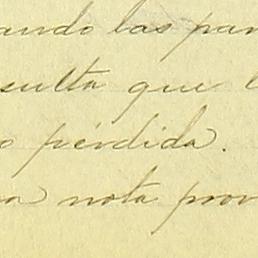 ando las par
sulta que l
o pérdida.
a nota prov